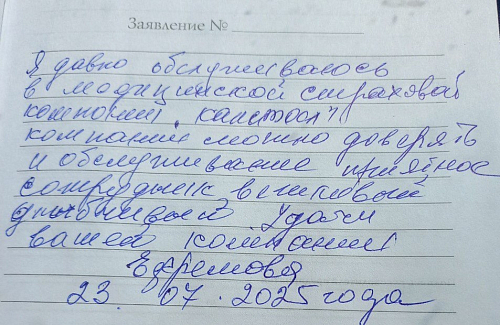 Заявление №
Я давно обслуживаюсь
в медицинской страховой
компании "капитал"
компании можно доверять
и обслуживание приятное
сотрудник вежливый
Удачи
вашей компании
Ефремова
23. 07. 2025 года